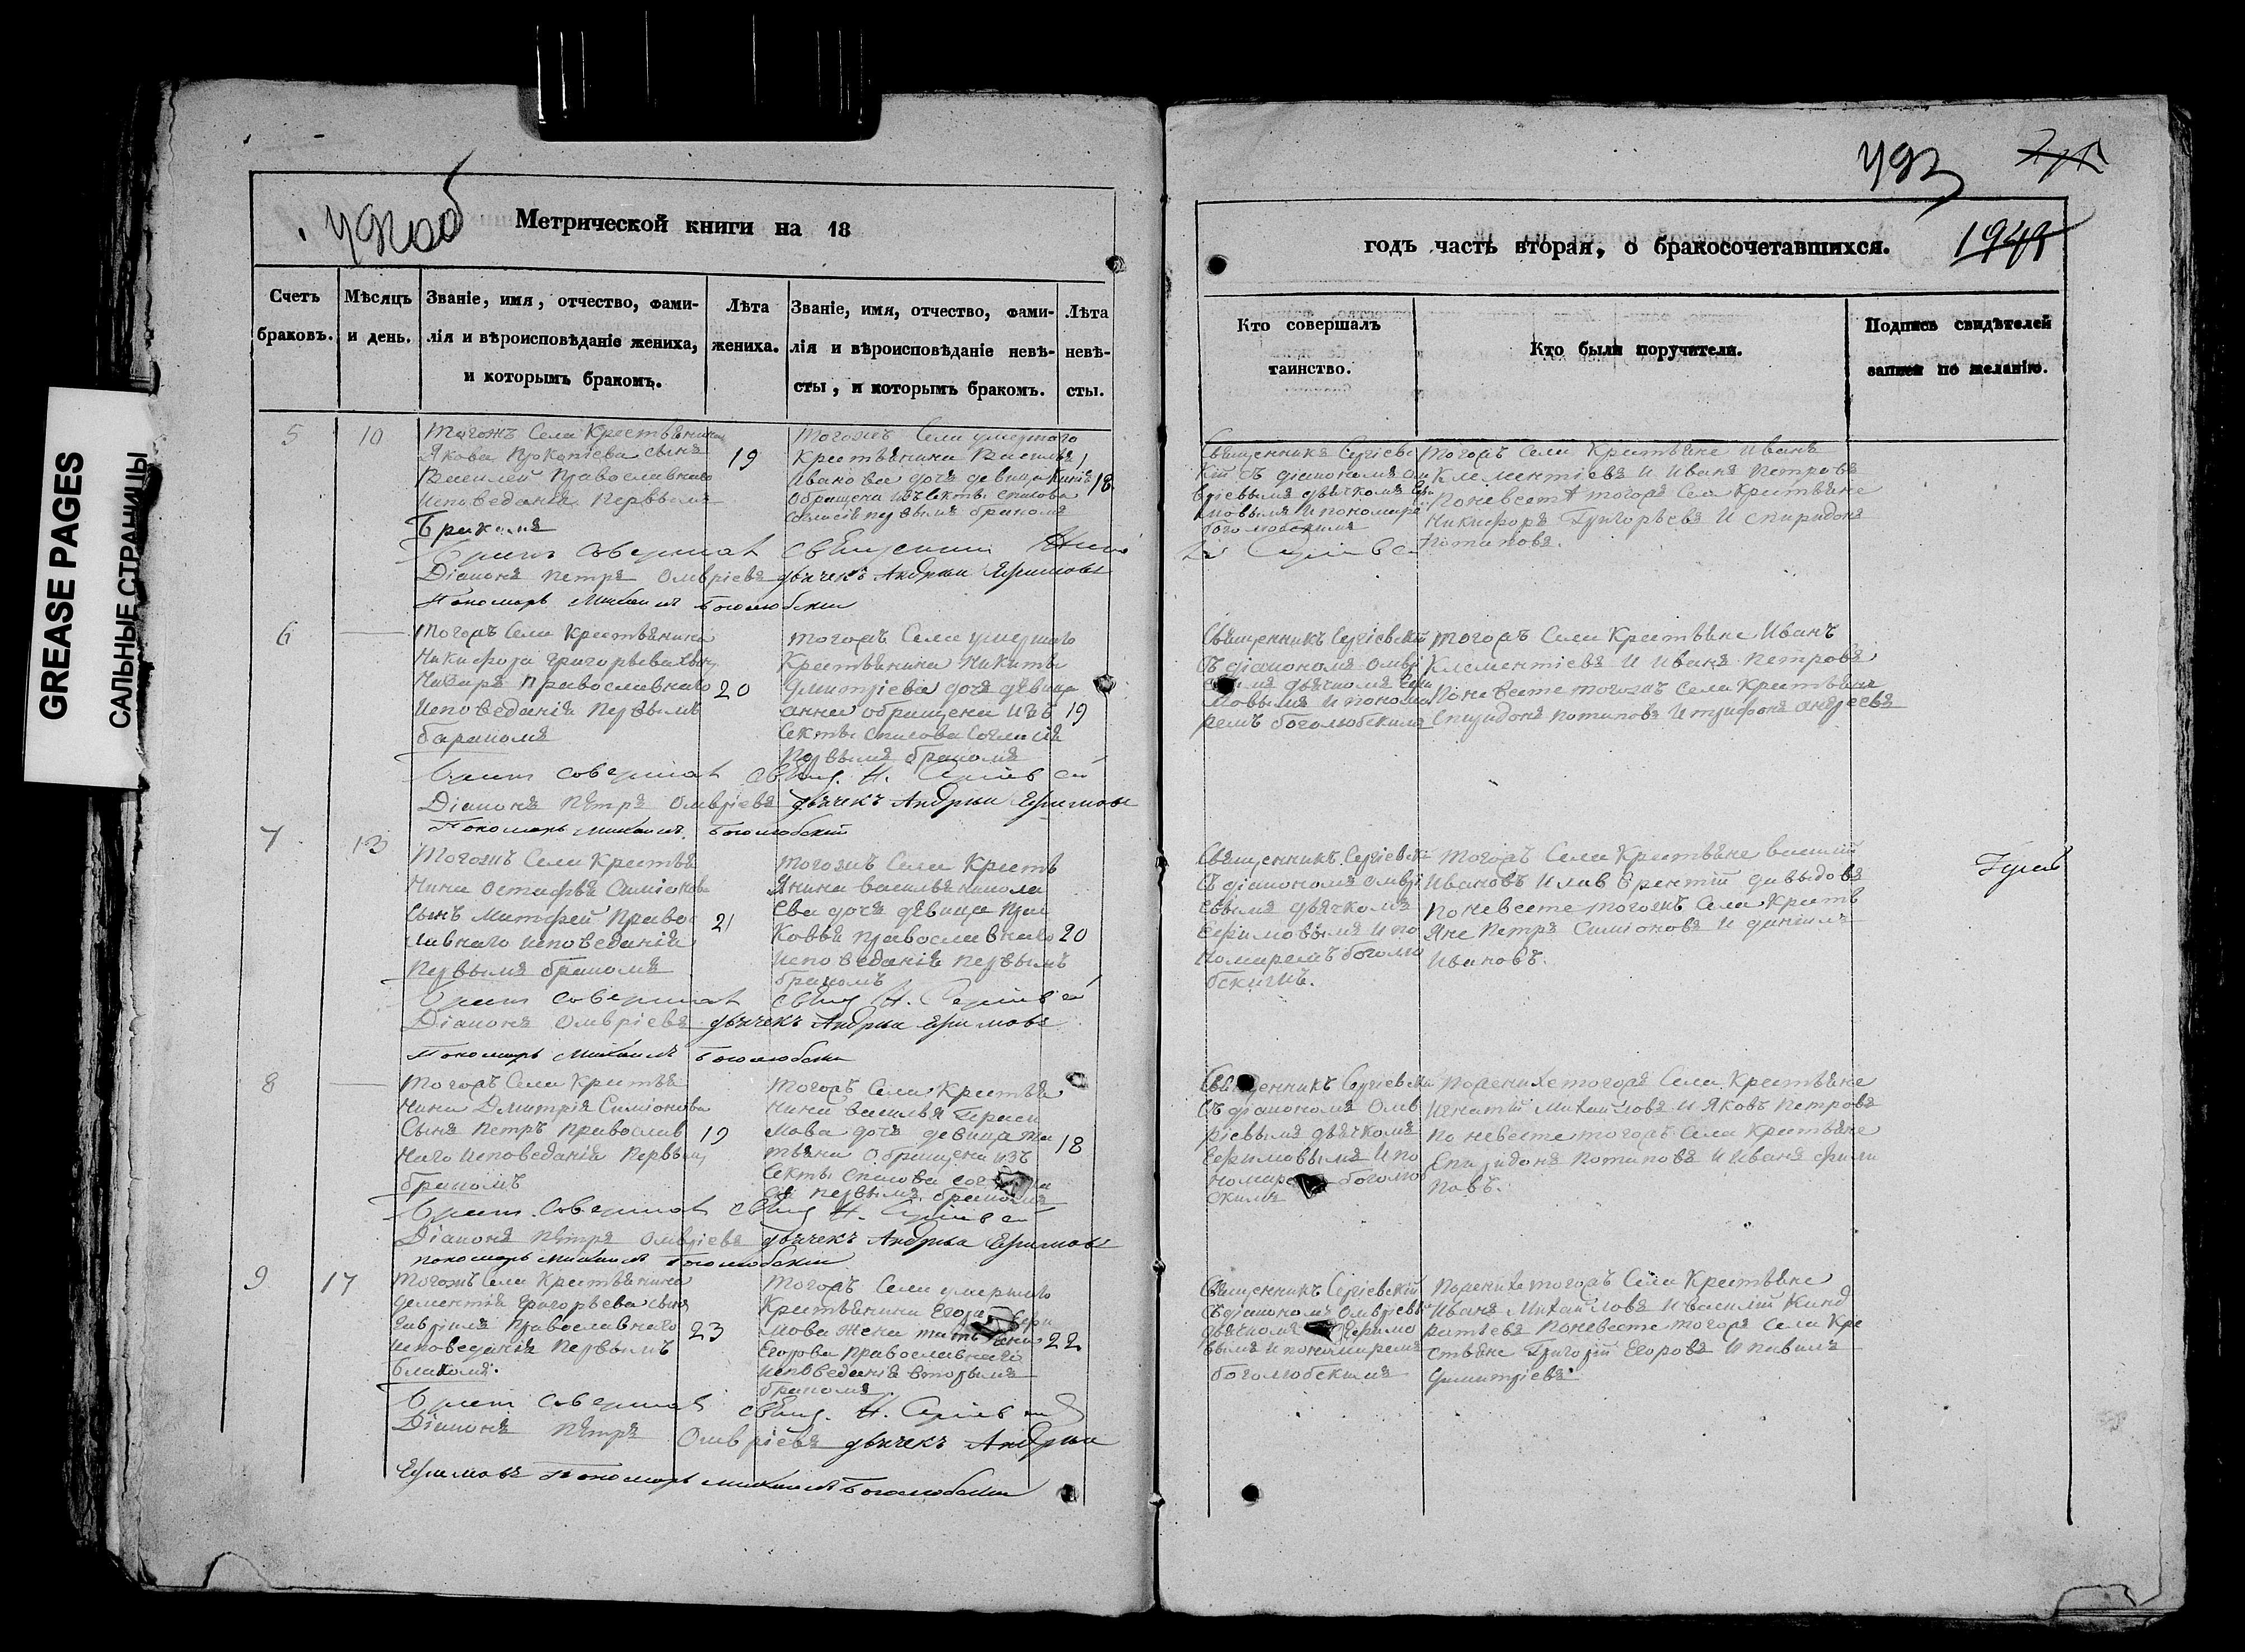 GREASE PAGES
САЛЬНЫЕ СТРАНИЦЫ
Метрической книги на 18
Счетъ браковъ.
Мѣсяцъ и день.
Званіе, имя, отчество, фами-
лія и вѣроисповѣданіе жениха,
и которымъ бракомъ.
Лѣта жениха.
Званіе, имя, отчество, фами-
лія и вѣроисповѣданіе невѣ-
сты, и которымъ бракомъ.
Лѣта невѣ-
сты.
5
10
Тогожъ Села Крестьянина
Якова Прокопіева сынъ
Василей Православнаго
Исповеданія Первымъ
Бракомъ
19
Тогожъ Села умершаго
Крестьянина Василья
Иванова дочь девица
обращена изъ Секты спасова
согласія первымъ бракомъ
18
Бракъ совершалъ священникъ
Діаконъ Петръ Олвріевъ дьячекъ Андрей Ефимовъ
Пономарь Михаилъ Боголюбскій
6
Тогожъ Села Крестьянина
Никифора Григорьева сынъ
Назаръ Православнаго
Исповеданія Первымъ
баракомъ
20
Тогожъ Села умершаго
Крестьянина Никиты
Дмитріева дочь девица
анна обращена изъ
Секты спасова согласія
Первымъ бракомъ
19
Бракъ совершалъ свящ. Н. Сергіевскій
Діаконъ Петръ Олвріевъ дьячекъ Андрей Ефимовъ
Пономарь Михаилъ Боголюбскій
7
13
Тогожъ Села Крестья
нина Остафья Симіонова
Сынъ Матфей Правос
лавнаго исповеданія
Первымъ бракомъ
21
Тогожъ Села Кресть
янина Василья Никола
ева дочь девица Прас
ковья православнаго
исповеданія Первымъ
бракомъ
20
Бракъ совершалъ свящ Н. Сергіевскій
Діаконъ Олвріевъ дьячекъ Андрей Ефимовъ
Пономарь Михаилъ Боголюбскій
8
Тогожъ Села Крестья
нина Дмитрія Симіонова
Сынъ Петръ Православ
наго Исповеданія Первымъ
бракомъ
19
Тогожъ Села Крестья
нина Василья Гераси
мова дочь девица та
тьяна обращена изъ
Секты спасова
первымъ бракомъ
18
Бракъ совершалъ свящ Н. Сергіевскій
Діаконъ Петръ Олвріевъ дьячекъ Андрей Ефимовъ
пономарь Михаилъ Боголюбскій
9
17
Тогожъ Села Крестьянина
Дементія Григорьева сынъ
Гаврила Православнаго
исповеданія Первымъ
бракомъ.
23
Тогожъ Села умершаго
Крестьянина Егора
мова жена
Егорова православнаго
исповеданія вторымъ
бракомъ
22
Бракъ совершалъ свящ. Н. Сергіевскій
Діаконъ Петръ Олвріевъ дьячекъ Андрей
Ефимовъ Пономарь Михаилъ Боголюбскій
493
1949
годъ часть вторая, о бракосочетавшихся.
Кто совершалъ таинство.
Кто были поручители.
Подпись свидѣтелей
записи по желанію.
Священникъ Сергіевс
кій съ діакономъ Ол
вріевымъ дьячкомъ Ефи
мовымъ и пономаре
Боголюбскимъ
Тогожъ Села Крестьяне Иванъ
Клементіевъ И Иванъ Петровъ
Поневесте тогожъ Села Крестьяне
Никифоръ Григорьевъ И Спиридонъ
Потаповъ.
Священникъ Сергіевскій
съ діакономъ Олврі
евымъ дьячкомъ Ефи
мовымъ И понома
ремъ боголюбскимъ
Тогожъ Села Крестьяне Иванъ
Клементіевъ И Иванъ Петровъ
Поневесте тогожъ Села Крестьяне
Спиридонъ Потаповъ И трифонъ андреевъ
Священникъ Сергіевскі
съ діакономъ Олврі
евымъ дьячкомъ
Ефимовымъ И по
номаремъ боголю
бскимъ.
Тогожъ Села Крестьяне Василій
Ивановъ И лаврентій давыдовъ
Поневесте тогожъ Села Кресть
яне Петръ Симіоновъ И данилъ
Ивановъ.
Священникъ Сергіевскі
съ діакономъ Олв
ріевымъ дьячкомъ
Ефимовымъ И по
номаре боголюб
скимъ
Пожениху тогожъ Села Крестьяне
Игнатій Михайловъ И Яковъ Петровъ
По невесте тогожъ Села Крестьяне
Спиридонъ Потаповъ И Иванъ фили
повъ.
Священникъ Сергіевскій
съ діакономъ Олвріевы
дьячкомъ Ефимо
вымъ и пономаремъ
боголюбскимъ
Пожениху тогожъ Села Крестьяне
Иванъ Михайловъ И Василій Кинд
ратьевъ Поневесте тогожъ Села Кре
стьяне Григорій Егоровъ И Павелъ
Дмитріевъ